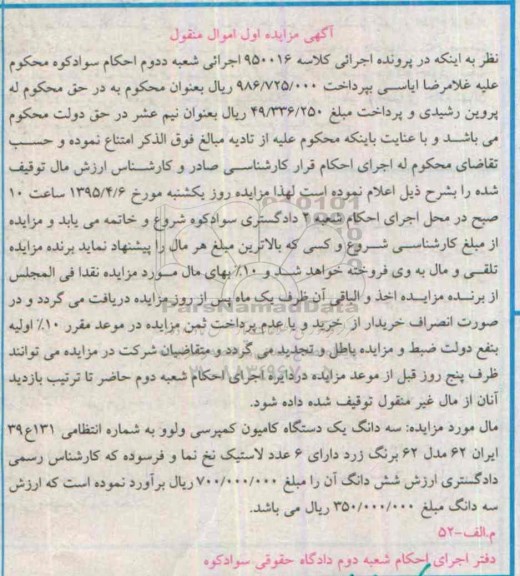 آگهی مزایده اول اموال منقول
نظر به اینکه در پرونده اجرائی کلاسه ۹۵۰۰۱۶ اجرائی شعبه ددوم احکام سوادکوه محکوم
علیه غلامرضا ایاسی بپرداخت ۹۸۶/۷۲۵/۰۰۰ ریال بعنوان محکوم به در حق محکوم له
پروین رشیدی و پرداخت مبلغ ۴۹/۳۳۶/۲۵۰ ریال بعنوان نیم عشر در حق دولت محکوم
می باشد و با عنایت باینکه محکوم علیه از تادیه مبالغ فوق الذکر امتناع نموده و حسب
تقاضای محکوم له اجرای احکام قرار کارشناسی صادر و کارشناس ارزش مال توقیف
شده را بشرح ذیل اعلام نموده است لهذا مزایده روز یکشنبه مورخ ۱۳۹۵/۴/۶ ساعت ۱۰
صبح در محل اجرای احکام شعبه ۲ دادگستری سوادکوه شروع و خاتمه می یابد و مزایده
از مبلغ کارشناسی شروع و کسی که بالاترین مبلغ هر مال را پیشنهاد نماید برنده مزایده
تلقی و مال به وی فروخته خواهد شد و ۱۰٪ بهای مال مورد مزایده نقدا فی المجلس
از برنده مزایده اخذ و الباقی آن ظرف یک ماه پس از روز مزایده دریافت می گردد و در
صورت انصراف خریدار از خرید و یا عدم پرداخت ثمن مزایده در موعد مقرر ۱۰٪ اولیه
بنفع دولت ضبط و مزایده باطل و تجدید می گردد و متقاضیان شرکت در مزایده می توانند
ظرف پنج روز قبل از موعد مزایده دردایره اجرای احکام شعبه دوم حاضر تا ترتیب بازدید
آنان از مال غیر منقول توقیف شده داده شود.
مال مورد مزایده: سه دانگ یک دستگاه کامیون کمپرسی ولوو به شماره انتظامی ۱۳۱ع۳۹
ایران ۶۲ مدل ۶۲ برنگ زرد دارای ۶ عدد لاستیک نخ نما و فرسوده که کارشناس رسمی
دادگستری ارزش شش دانگ آن را مبلغ ۷۰۰/۰۰۰/۰۰۰ ریال برآورد نموده است که ارزش
سه دانگ مبلغ ۳۵۰/۰۰۰/۰۰۰ ریال می باشد.
م.الف-۵۲
دفتر اجرای احکام شعبه دوم دادگاه حقوقی سوادکوه
ParsNamadData